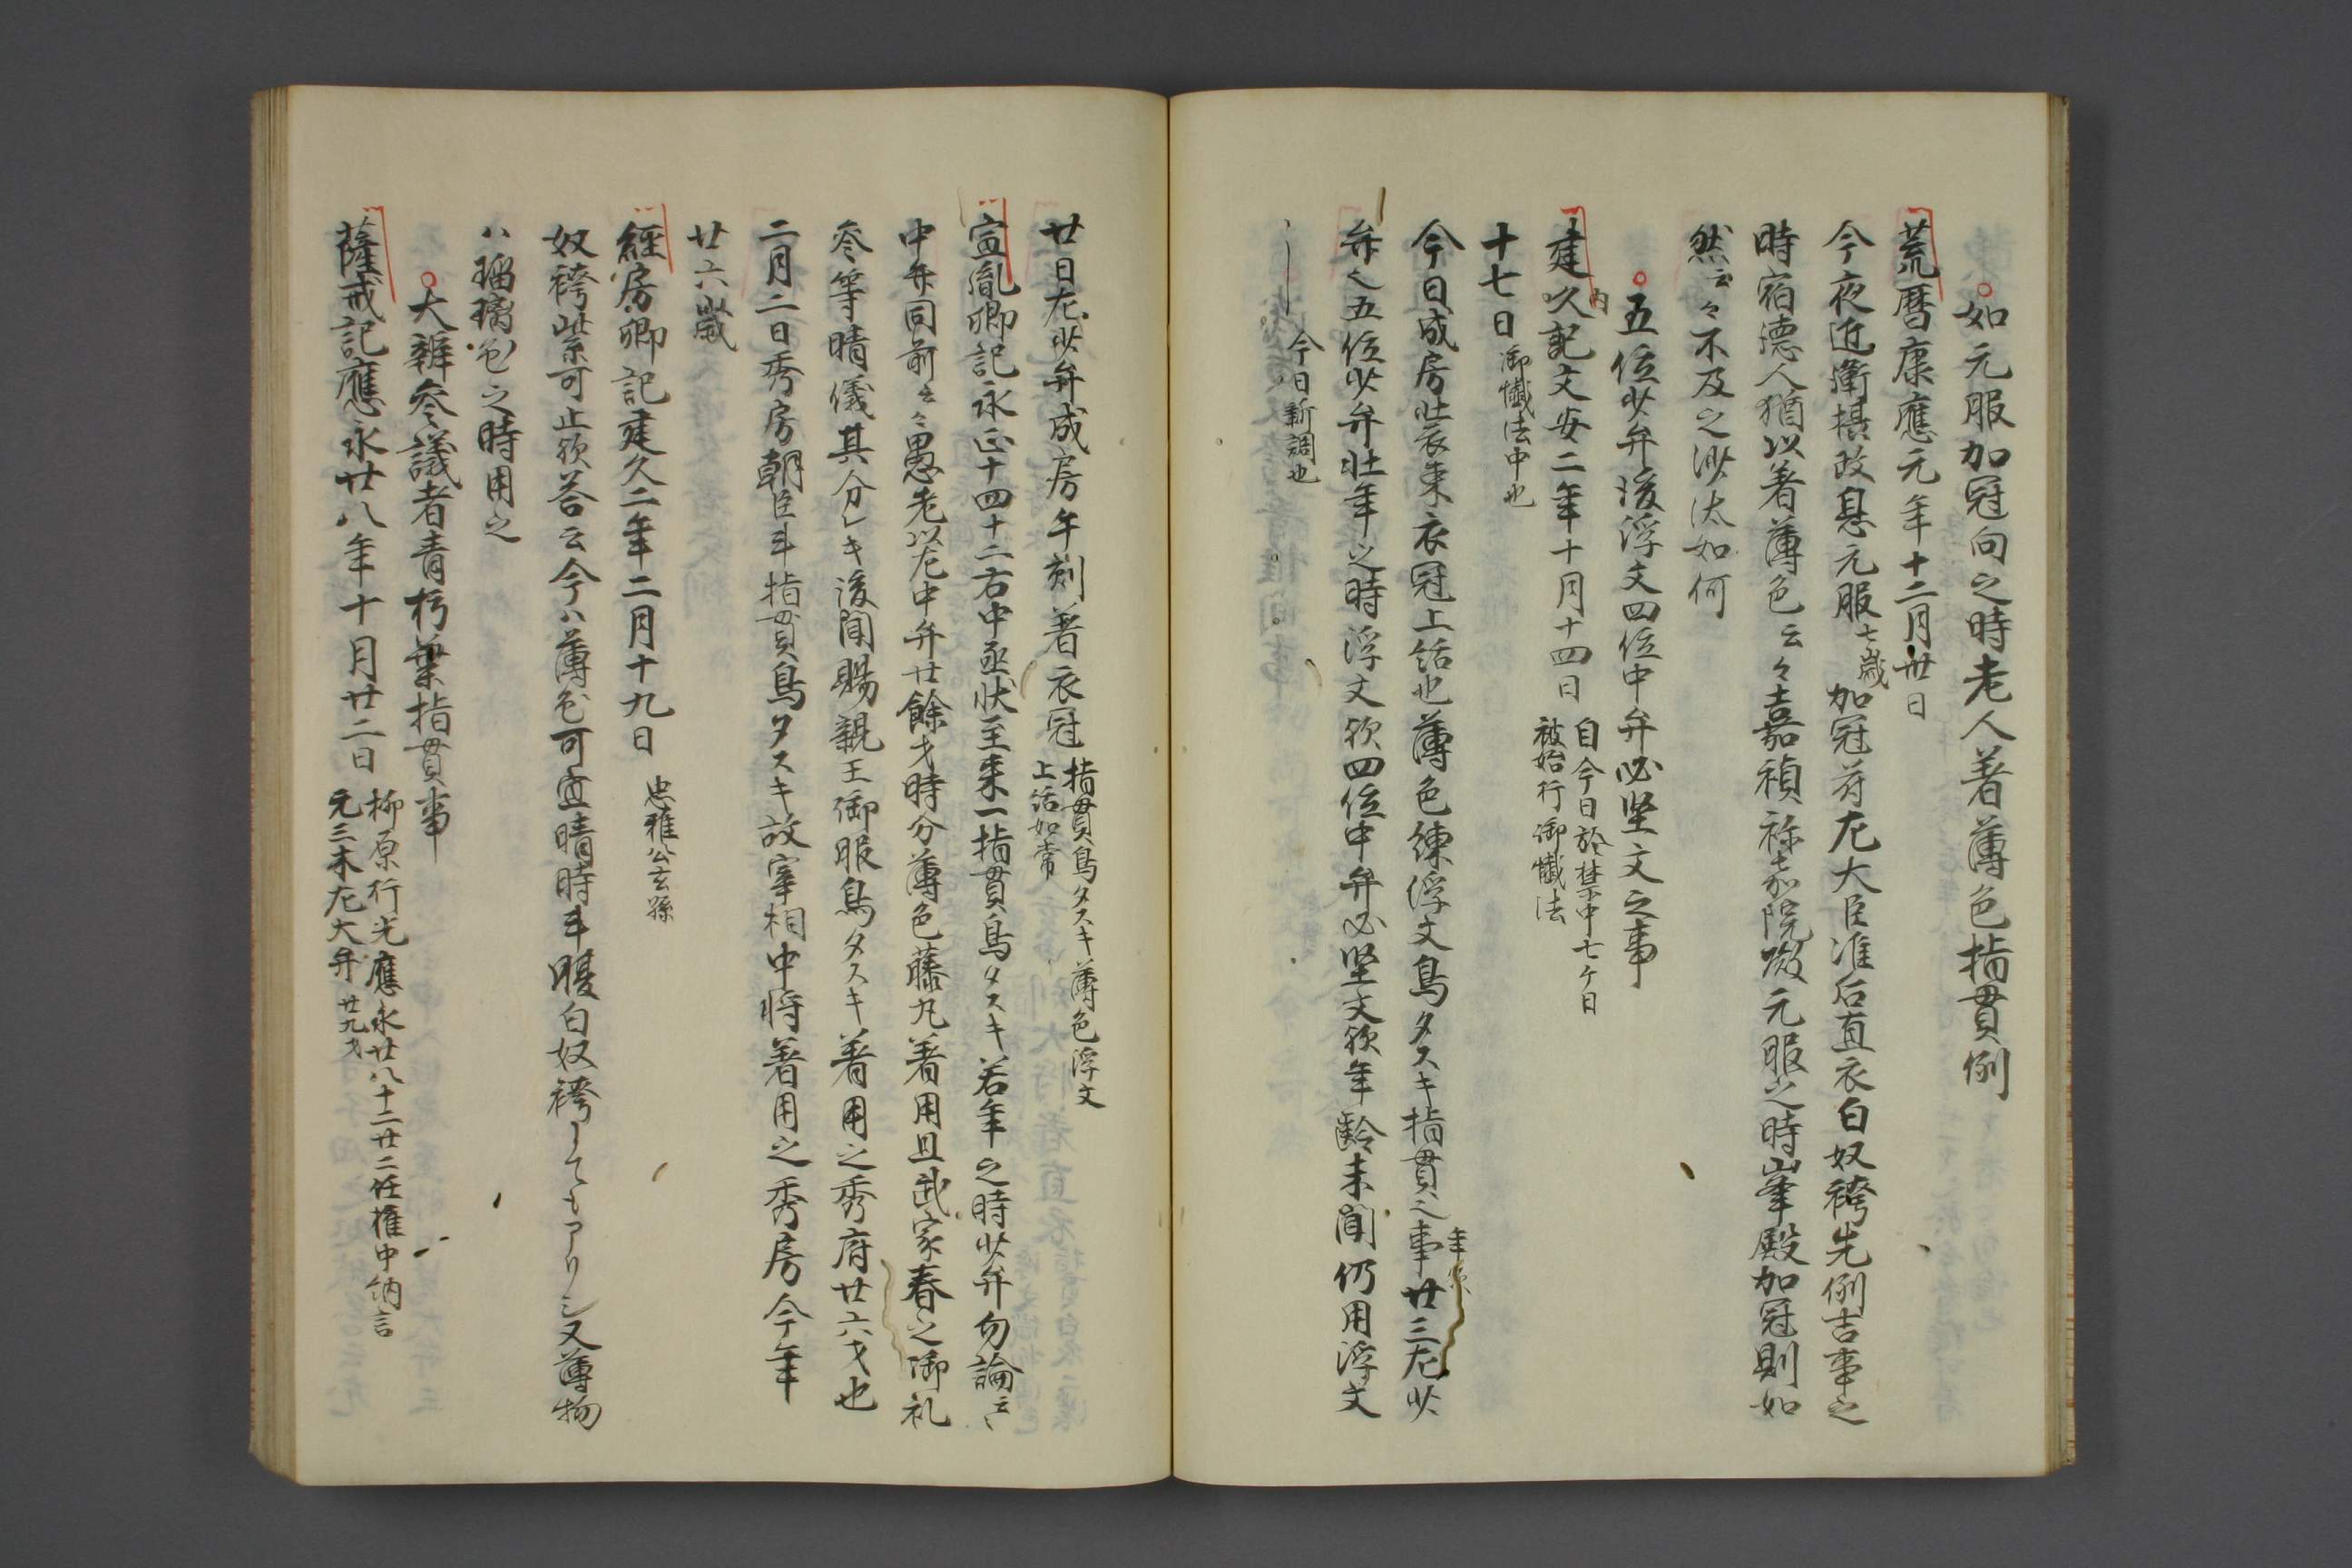 如元服加冠向之時老人著薄色指貫例
荒暦康應元年十二月卅日
今夜近衛摂政息元服七歳加冠苻左大臣准后直衣白奴袴先例吉事之
時宿徳人猶以著薄色云々嘉禎祢嘉院殿元服之時峯殿加冠則如
然云々不及之沙汰如何
五位少弁後浮文四位中弁必堅文之事
建内記文安二年十月十四日
自今日於禁中七ケ日
被始行御懺法
十七日御懺法中也
今日成房壮衣束衣冠上括也薄色練浮文鳥タスキ指貫之事年廿三左少
弁之五位少弁壮年之時浮文欤四位中弁必堅文欤年齢未聞仍用浮文
今日新調也
廿日左少弁成房午刻著衣冠
指貫鳥タスキ薄色浮文
上括如常
宣胤卿記永正十四十二右中丞状至来一指貫鳥タスキ若年之時少弁勿論云々
中弁同前云々愚老以左中弁廿餘才時分薄色藤丸著用且武家春之御礼
参等晴儀其分シキ後聞賜親王御服鳥タスキ著用之秀府廿六才也
二月二日秀房朝臣来指貫鳥タスキ故宰相中将著用之秀房今年
廿六歳
經房卿記建久二年二月十九日
忠雅公云孫
奴袴紫可止欤答云今ハ薄色可宜晴時来腰白奴袴シテモアリシ又薄物
ハ瑠璃色之時用之
大辨参議者青朽葉指貫事
薩戒記應永廿八年十月廿二日
柳原行光應永廿八十二廿二任権中納言
元三木左大弁廿九才